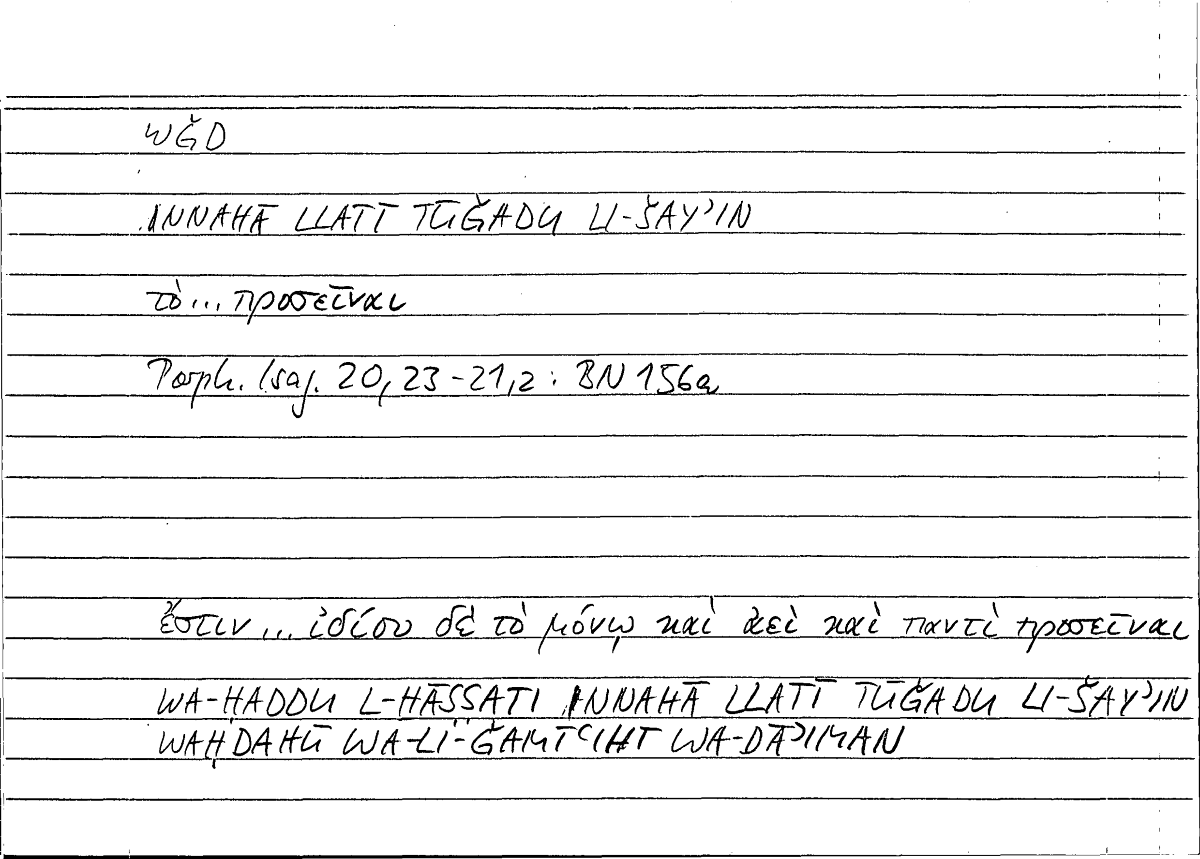 WǦD
INNAHĀ LLATĪ TŪǦADU LI-ŠAYʾIN
τὸ... προσεῖναι
Porph. Isag. 20, 23-21,2 : BN 156a
ἔστιν... ἰδίου δὲ τὸ μόνῳ καὶ ἀεὶ καὶ παντὶ προσεῖναι
WA-ḤADDU L-ḪĀṢṢATI INNAHĀ LLATĪ TŪǦADU LI-ŠAYʾIN
WAḤDAHŪ WA-LI-ǦAMĪʿIHĪ WA-DĀʾIMAN